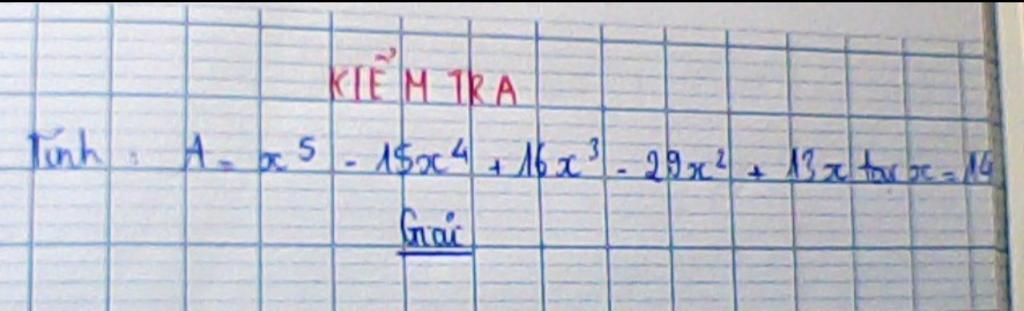 KIỂM TRA
Tính : A = x⁵ - 15x⁴ + 16x³ - 29x² + 13x tại x = 14
Giải